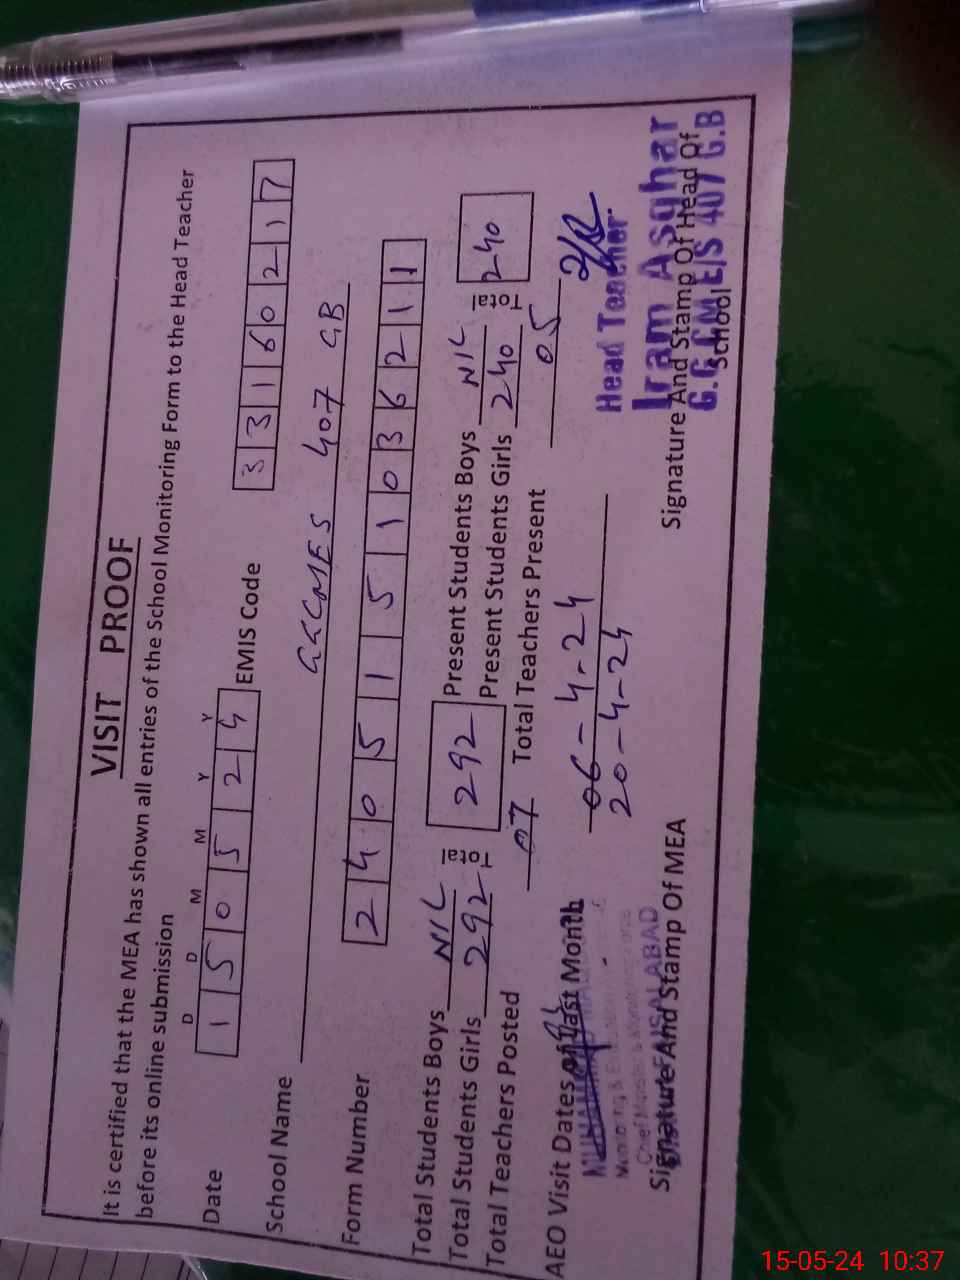 VISIT PROOF
It is certified that the MEA has shown all entries of the School Monitoring Form to the Head Teacher
before its online submission
D D M M Y Y
Date 1 5 0 5 2 4 EMIS Code 3 3 1 6 0 2 1 7
School Name GCCMES 407 GB
Form Number 2 4 0 5 1 5 1 0 3 6 2 1 1
Total Students Boys NIL Total 292 Present Students Boys NIL Total 240
Total Students Girls 292 Present Students Girls 240
Total Teachers Posted 07 Total Teachers Present 05
AEO Visit Dates of Last Month 06-4-24
20-4-24
Head Teacher
Iram Asghar
G.GCMEIS 407 G.B
Monitoring &
Chief Minister's Monitoring Force
FAISALABAD
Signature And Stamp Of MEA Signature And Stamp Of Head Of
School
15-05-24 10:37